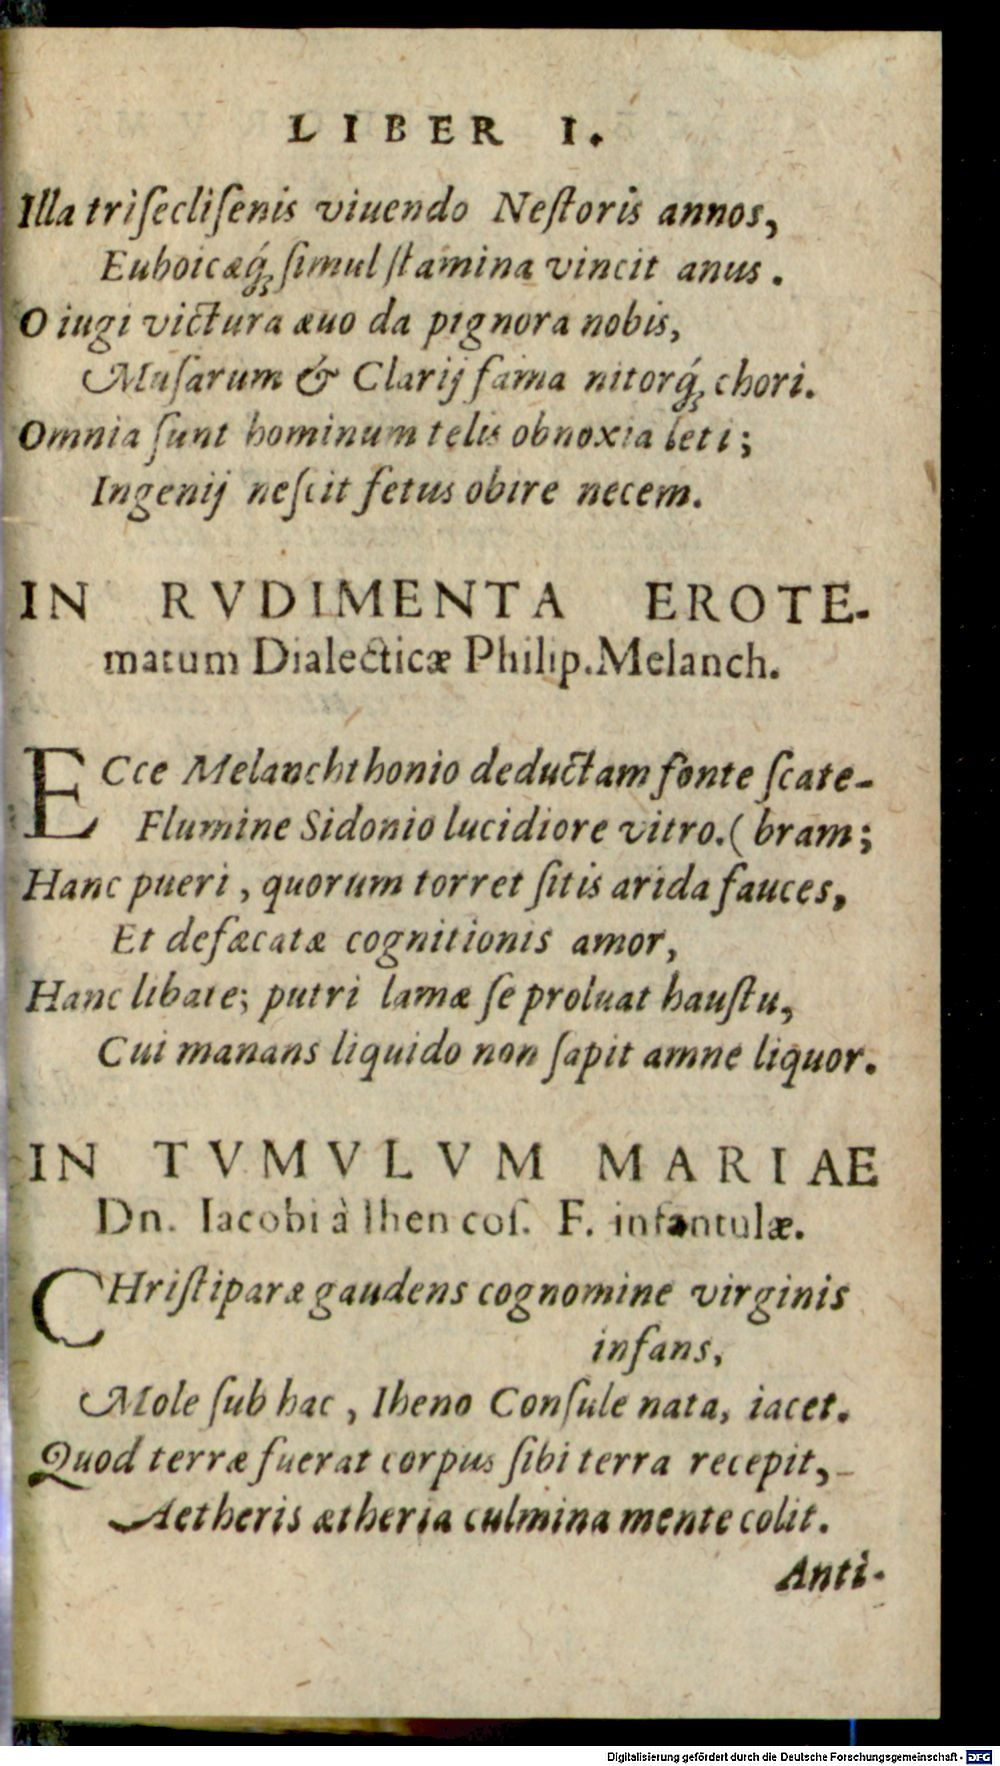 LIBER I.
Illa triſecliſenis viuendo Neſtoris annos,
Euboicæq́; ſimul ſtamina vincit anus.
O iugi victura æuo da pignora nobis,
Muſarum & Clarij fama nitorq́; chori.
Omnia ſunt hominum telis obnoxia leti;
Ingenij neſcit fetus obire necem.
IN RVDIMENTA EROTE-
matum Dialecticæ Philip. Melanch.
ECce Melanchthonio deductam fonte ſcate-
Flumine Sidonio lucidiore vitro. (bram;
Hanc pueri, quorum torret ſitis arida fauces,
Et defæcatæ cognitionis amor,
Hanc libate; putri lamæ ſe proluat hauſtu,
Cui manans liquido non ſapit amne liquor.
IN TVMVLVM MARIAE
Dn. Iacobi à Ihen coſ. F. infantulæ.
CHriſtiparæ gaudens cognomine virginis
infans,
Mole ſub hac, Iheno Conſule nata, iacet.
Quod terræ fuerat corpus ſibi terra recepit,
Aetheris ætheria culmina mente colit.
Anti-
Digitalisierung gefördert durch die Deutsche Forschungsgemeinschaft - DFG